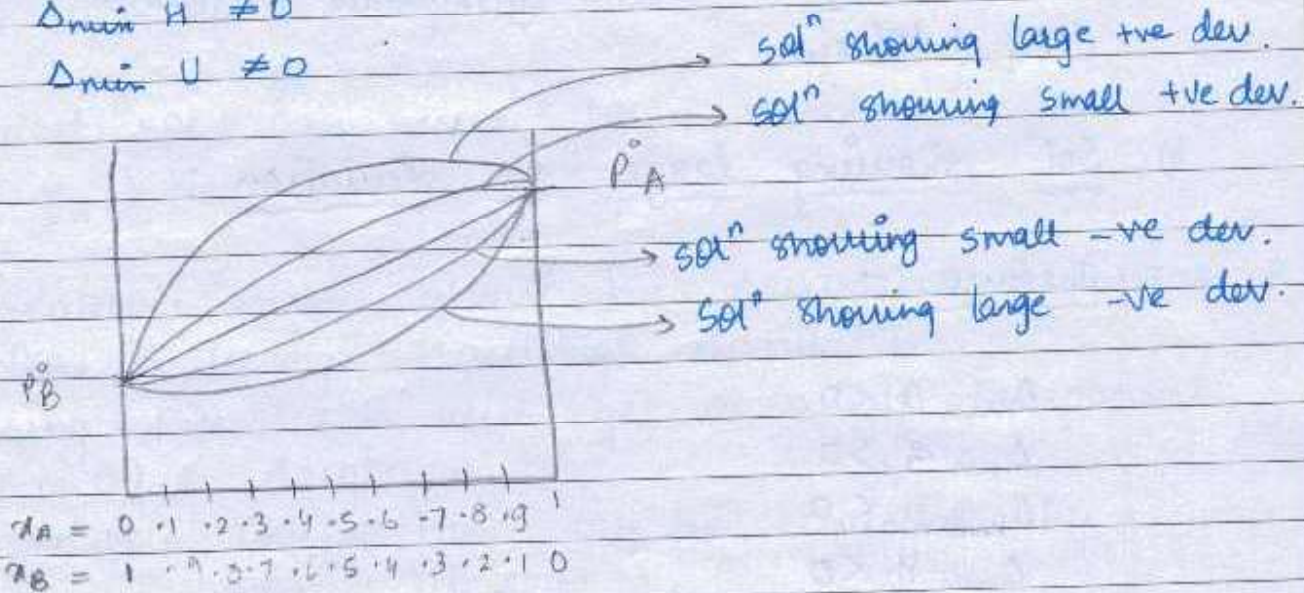 Δmin H ≠ 0
Δmin U ≠ 0
solⁿ showing large +ve dev.
solⁿ showing small +ve dev.
P°A
solⁿ showing small -ve dev.
solⁿ showing large -ve dev.
P°B
xA = 0 .1 .2 .3 .4 .5 .6 .7 .8 .9 1
xB = 1 .9 .8 .7 .6 .5 .4 .3 .2 .1 0